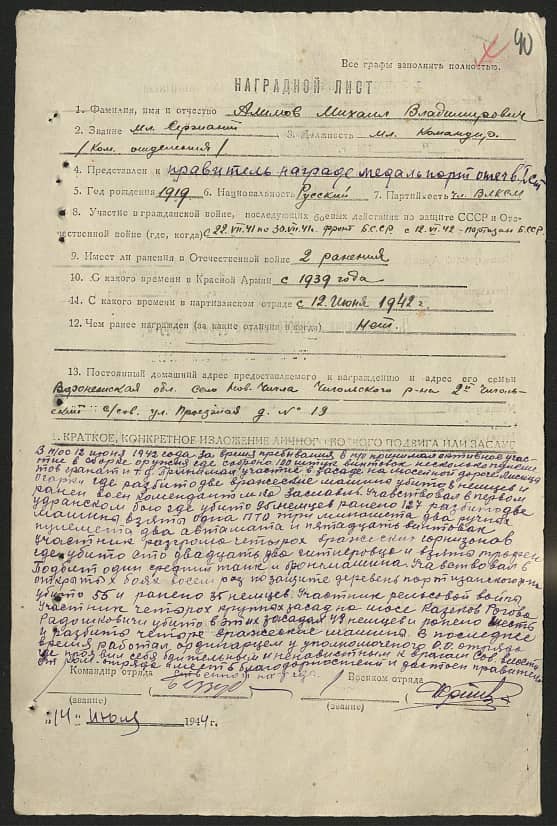 90
Все графы заполнить полностью.
НАГРАДНОЙ ЛИСТ
1. Фамилия, имя и отчество Алимов Михаил Владимирович
2. Звание мл. Сержант 3. Должность мл. Командир
/Ком. отделения/
4. Представлен к правитель награде медаль парт отечв. I ст
5. Год рождения 1919 6. Национальность Русский 7. Партийность чл. ВЛКСМ
8. Участие в гражданской войне, последующих боевых действиях по защите СССР и Оте-
чественной войне (где, когда) С 22.VII.41 по 30.VII.41г. фронт БССР с 12.VI.42 - партизан БССР
9. Имеет ли ранения в Отечественной войне 2 ранения
10. С какого времени в Красной Армии с 1939 года
11. С какого времени в партизанском отряде с 12 Июня 1942 г
12. Чем ранее награжден (за какие отличия и когда) Нет.
13. Постоянный домашний адрес представляемого к награждению и адрес его семьи
Воронежская обл. село Нов. Чигла Чигольского р-на 2й Чиголь-
ский с/сов. ул. Проезжая д. № 19
1. КРАТКОЕ, КОНКРЕТНОЕ ИЗЛОЖЕНИЕ ЛИЧНОГО БОЕВОГО ПОДВИГА ИЛИ ЗАСЛУГ
В п/о с 12 июня 1942 года за время пребывания в п/о принимал активное учас-
тие в сборке оружия где собрано 120 штук винтовок несколько пулеме
тов гранат и т.д. Принимал участие в засаде на шоссейной дороге
где разбито две вражеские машины убито 6 немцев и
ранен воен комендант м-ка Заславль. Участвовал в первом
бою где убито немцев ранено 127 разбито две
машины взята одна ПТО три миномета два ручных
пулемета два автомата и пятнадцать винтовок
Участник разгрома четырех вражеских гарнизонов
где убито сто двадцать два гитлеровца и взяты трофеи
Подбит один средний танк и бронемашина. Участвовал в
открытых боях восем раз по защите деревень партизанского
убито 55 и ранено 35 немцев. Участник рельсовой войны
Участник четырех крупных засад на шосе Рогова
Радошковичи убито в этих засадах 49 немцев и ранено шесть
и разбито четыре вражеские машины. В последнее
время работал ординарцем у уполномоченого О.О. отряда
где проявил себя бдительным и ненавистным к врагам Сов. власти
от ком. отряда имеет благодарностей и достоен правитель
ственной награде.
Командир отряда Военком отряда
(звание) (звание)
„14" июля 1944 г.